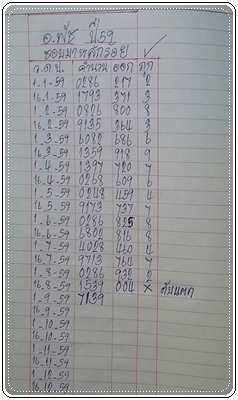 อ.พัช ปี 59
หอมมาหลักรอย ✓
ว.ด.ป. คำนวน ออก ถูก
1-1-59 0286 217 2
16-1-59 1793 371 3
1-2-59 0826 800 8
16-2-59 9135 364 3
1-3-59 6082 686 6
16-3-59 1359 918 9
1-4-59 1397 720 7
16-4-59 0268 609 6
1-5-59 0248 459 4
16-5-59 9173 737 7
1-6-59 0286 825 8
16-6-59 6802 816 8
1-7-59 4028 460 4
16-7-59 9713 764 7
1-8-59 0286 932 2
16-8-59 1539 004 × ดับแตก
1-9-59 7139
16-9-59
1-10-59
16-10-59
1-11-59
16-11-59
1-12-59
16-12-59